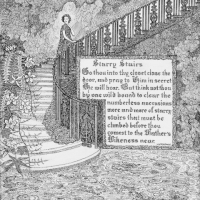 Starry Stairs
Go thou into thy closet close the
door, and pray to Him in secret
He will hear. But think not thou
by one wild bound to clear the
numberless ascensions
more and more of starry
stairs that must be
climbed before thou
comest to the Father's
likeness near